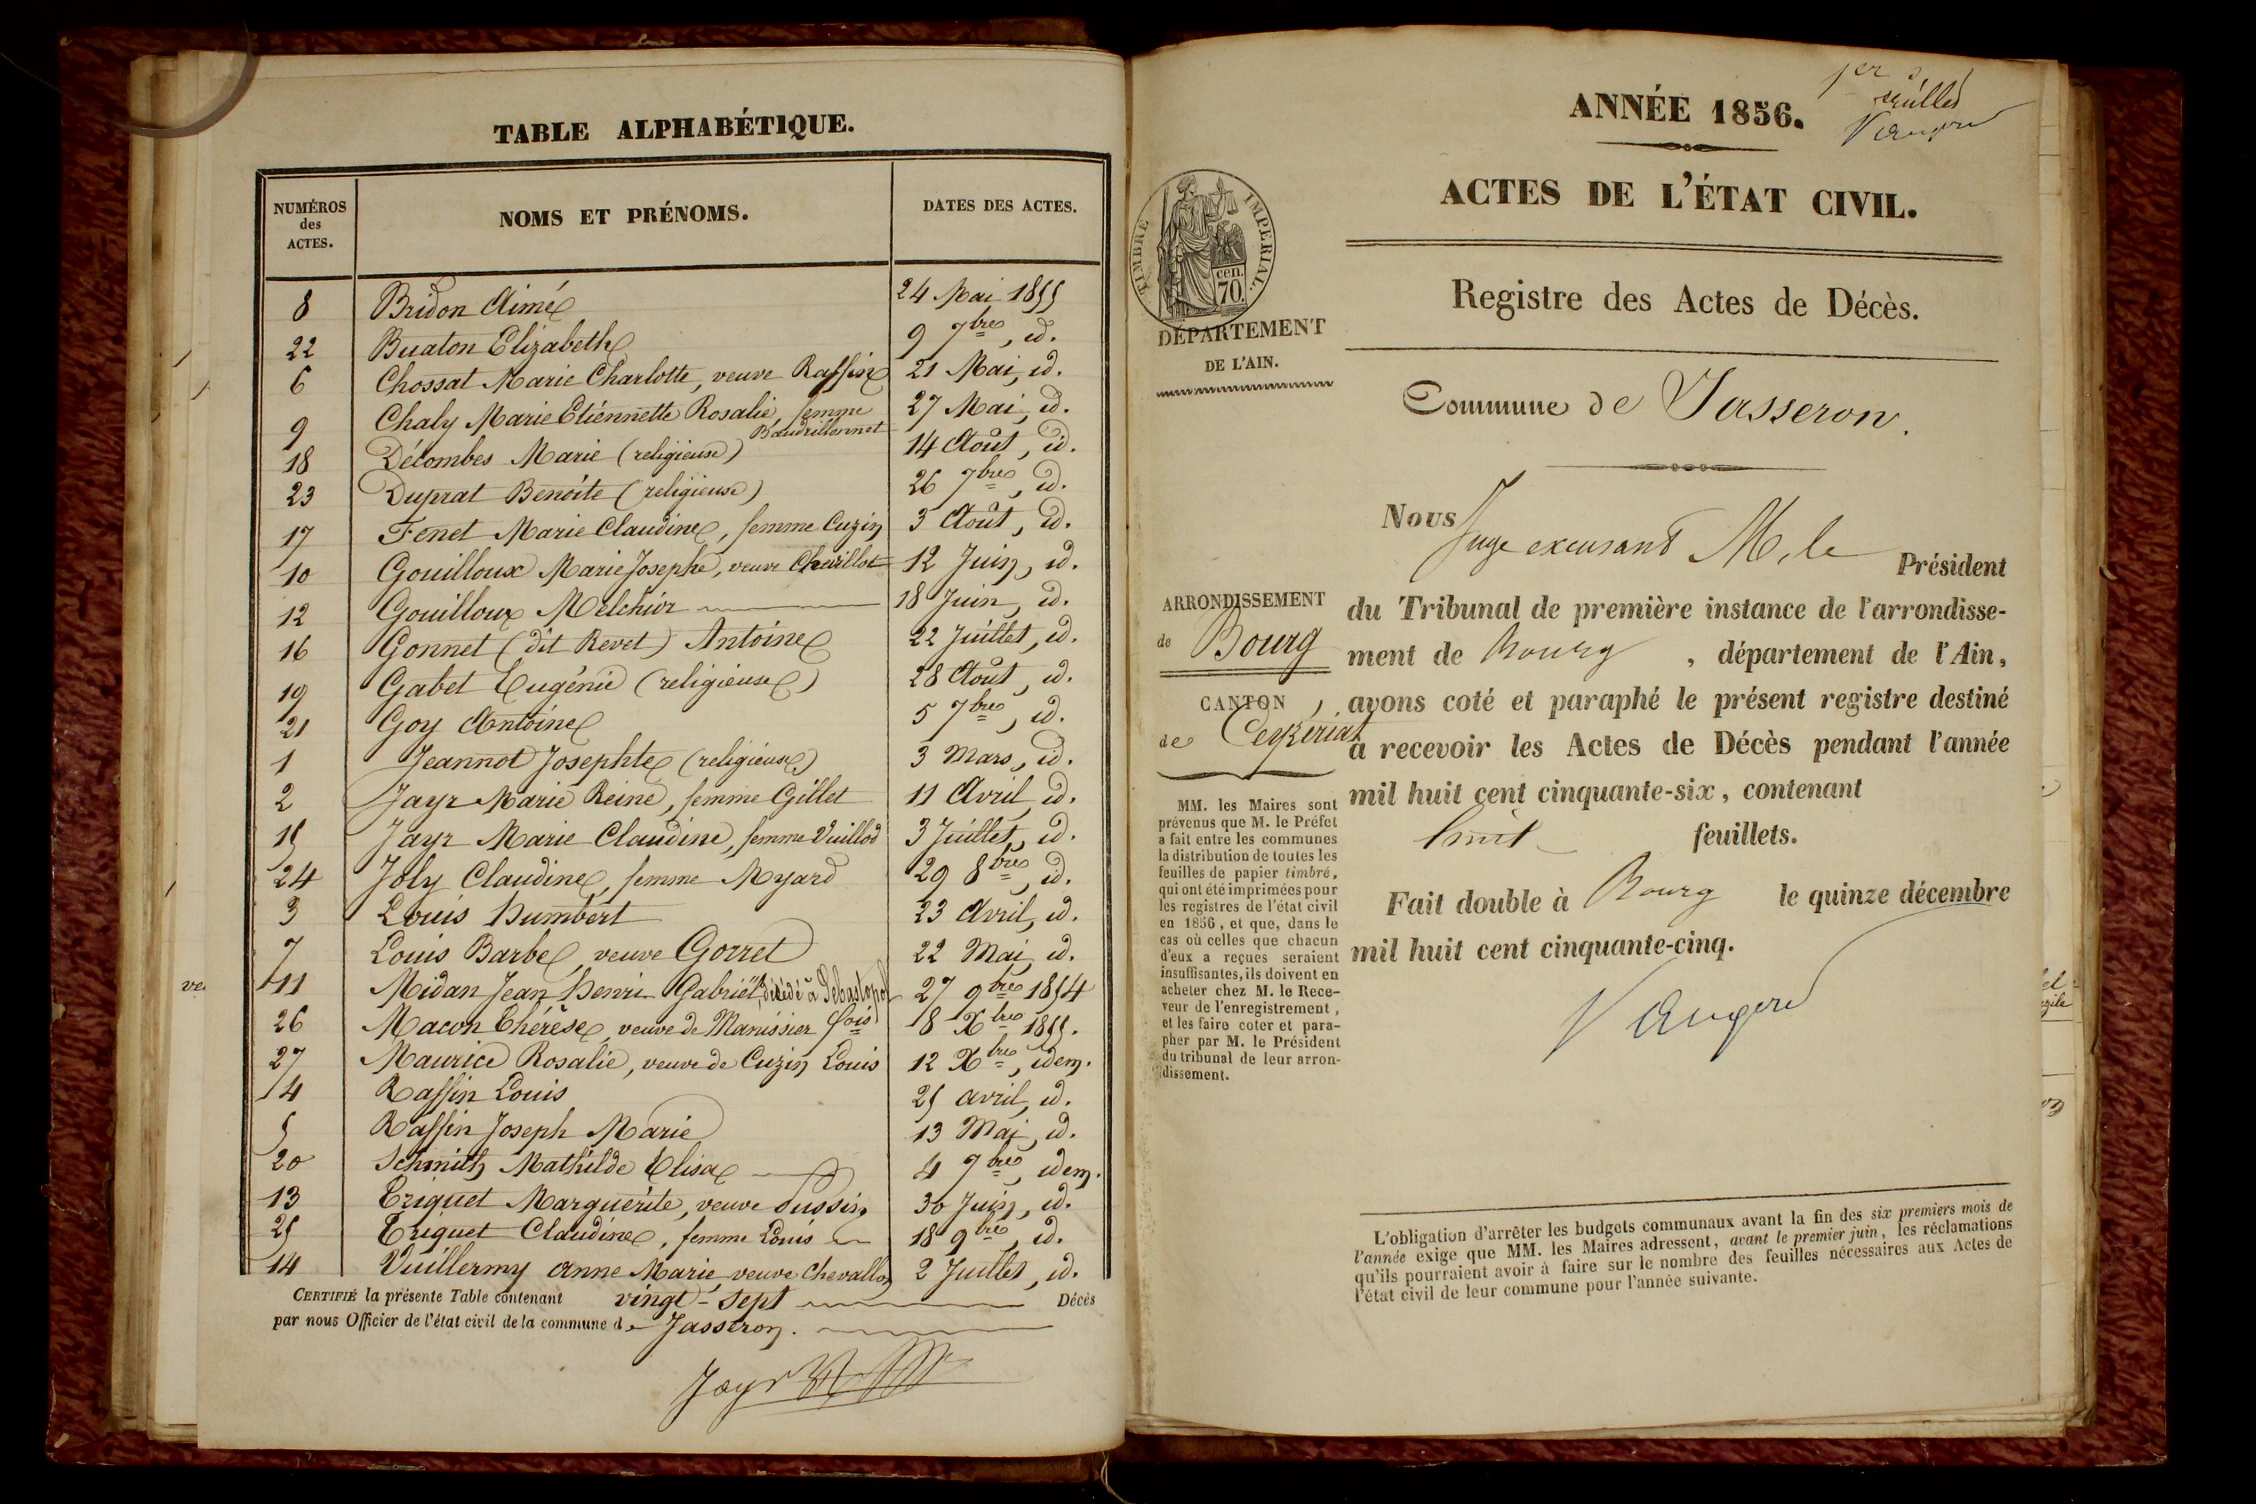 TABLE ALPHABÉTIQUE.
NUMÉROS des ACTES. NOMS ET PRÉNOMS. DATES DES ACTES.
8 Bridon Aimé 24 Mai 1855
22 Buaton Elizabeth 9 7bre, id.
6 Chossat Marie Charlotte, veuve Raffin 21 Mai, id.
9 Chaly Marie Etiennette Rosalie, femme Baudrillonnet 27 Mai, id.
18 Décombes Marie (religieuse) 14 Août, id.
23 Duprat Benoîte (religieuse) 26 7bre, id.
17 Fenet Marie Claudine, femme Cuzin 3 Août, id.
10 Gouilloux Marie Josephe, veuve Chevillot 12 Juin, id.
12 Gouilloux Melchior 18 Juin, id.
16 Gonnet (dit Revet) Antoine 22 Juillet, id.
19 Gabet Eugénie (religieuse) 28 Août, id.
21 Goy Antoine 5 7bre, id.
1 Jeannot Josephte (religieuse) 3 Mars, id.
2 Jayr Marie Reine, femme Gillet 11 Avril, id.
15 Jayr Marie Claudine, femme Vuillod 3 Juillet, id.
24 Joly Claudine, femme Myard 29 8bre, id.
3 Louis Humbert 23 Avril, id.
7 Louis Barbe, veuve Gorret 22 Mai, id.
11 Midan Jean Henri Gabriël, décédé à Sébastopol 27 9bre 1854
26 Macon Thérèse, veuve de Manissier fois 8 Xbre 1855.
27 Maurice Rosalie, veuve de Cuzin Louis 12 Xbre, idem.
4 Raffin Louis 25 avril, id.
5 Raffin Joseph Marie 13 Mai, id.
20 Schmith Mathilde Elisa 4 7bre, idem.
13 Triquet Marguerite, veuve Sussin 30 Juin, id.
25 Triquet Claudine, femme Louis 18 9bre, id.
14 Vuillermy Anne Marie, veuve Chevallon 2 Juillet, id.
CERTIFIÉ la présente Table contenant vingt-sept Décès
par nous Officier de l'état civil de la commune de Jasseron.
Jayr
1er
feuillet
ANNÉE 1856.
ACTES DE L'ÉTAT CIVIL.
TIMBRE IMPERIAL.
cen.
70.
DÉPARTEMENT
DE L'AIN.
Registre des Actes de Décès.
Commune de Jasseron.
Nous Juge excusant M. le Président
du Tribunal de première instance de l'arrondisse-
ment de Bourg, département de l'Ain,
avons coté et paraphé le présent registre destiné
à recevoir les Actes de Décès pendant l'année
mil huit cent cinquante-six, contenant
huit feuillets.
Fait double à Bourg le quinze décembre
mil huit cent cinquante-cinq.
ARRONDISSEMENT
de Bourg
CANTON
de Ceyzériat
MM. les Maires sont
prévenus que M. le Préfet
a fait entre les communes
la distribution de toutes les
feuilles de papier timbré,
qui ont été imprimées pour
les registres de l'état civil
en 1856, et que, dans le
cas où celles que chacun
d'eux a reçues seraient
insuffisantes, ils doivent en
acheter chez M. le Rece-
veur de l'enregistrement,
et les faire coter et para-
pher par M. le Président
du tribunal de leur arron-
dissement.
L'obligation d'arrêter les budgets communaux avant la fin des six premiers mois de
l'année exige que MM. les Maires adressent, avant le premier juin, les réclamations
qu'ils pourraient avoir à faire sur le nombre des feuilles nécessaires aux Actes de
l'état civil de leur commune pour l'année suivante.